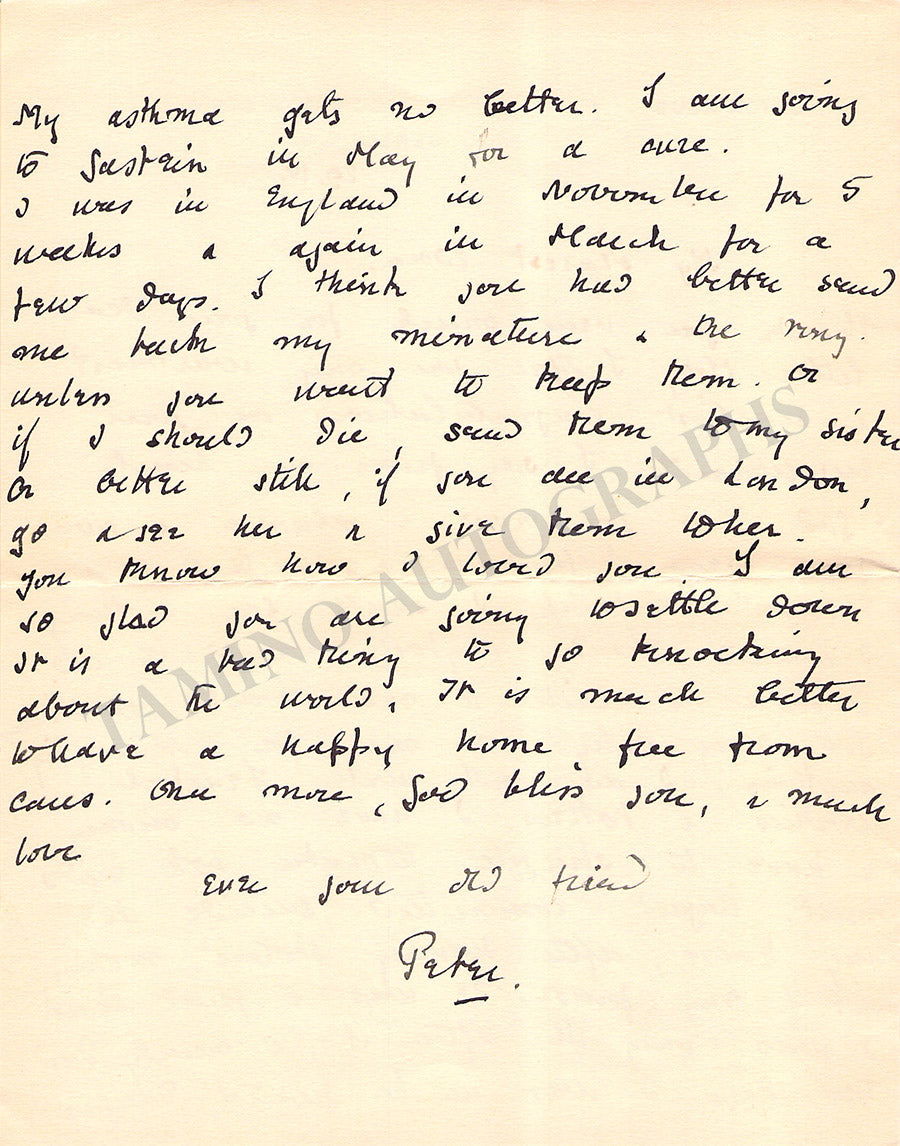 My asthma gets no better. I am going
to Gastein in May for a cure.
I was in England in November for 5
weeks & again in March for a
few days. I think you had better send
me back my miniature & the ring.
unless you want to keep them. Or
if I should die, send them to my sister
Or better still, if you are in London,
go & see her & give them to her.
You know how I loved you. I am
so glad you are going to settle down
It is a bad thing to go knocking
about the world. It is much better
to have a happy home, free from
cares. Once more, God bless you, & much
love
Ever your old friend
Peter.
TAMINO AUTOGRAPHS